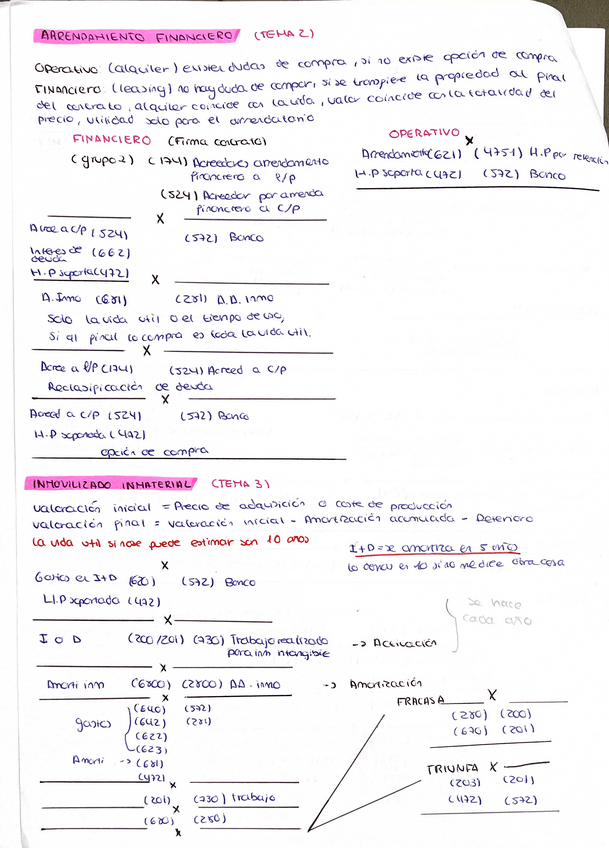 ARRENDAMIENTO FINANCIERO (TEMA 2)
Operativo: (alquiler) existen dudas de compra, si no existe opción de compra
Financiero: (leasing) no hay duda de compar, si se transpiere la propiedad al final
del contrato, alquiler coincide con la vida, valor coincide con la totalidad del
precio, utilidad solo para el arrendatario
FINANCIERO (Firma contrato)
(grupo 2) (174) Acreedores arrendamiento
financiero a l/p
(524) Acreedor por arrenda
financiero a c/p
OPERATIVO
X
Arrendamiento (621) (4751) H.P por retención
H.P soporta (472) (572) Banco
X
Acree a c/p (524) (572) Banco
Interes de (662)
deuda
H.P soporta (472)
X
A. Inmo (681) (281) A.A. inmo
Solo la vida util o el tiempo de uso,
si al final lo compra es toda la vida util.
X
Acree a l/p (174) (524) Acreed a c/p
Reclasificación de deuda
X
Acreed a c/p (524) (572) Banco
H.P soportada (472)
opción de compra
INMOVILIZADO INMATERIAL (TEMA 3)
valoración inicial = Precio de adquisición o coste de producción
valoración final = valoración inicial - Amortización acumulada - Deterioro
La vida util si no se puede estimar son 10 años
I+D = se amortiza en 5 años
lo demas en 10 si no me dice otra cosa
X
Gastos en I+D (620) (572) Banco
H.P soportado (472)
se hace
cada año
X
I o D (200/201) (730) Trabajo realizado
para inm intangible
-> Activación
X
Amorti inm (6800) (2800) AA. inmo -> Amortización
X
gastos
(640) (572)
(642) (281)
(622)
(623)
Amorti -> (681)
(472)
X
(201) (730) trabajo
X
(680) (280)
X
FRACASA X
(280) (200)
(670) (201)
TRIUNFA X
(203) (201)
(472) (572)